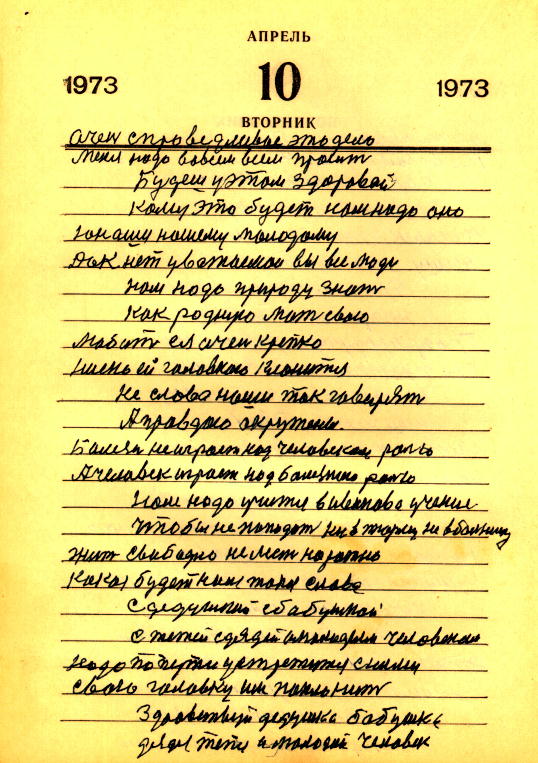 АПРЕЛЬ
1973 10 1973
ВТОРНИК
Очен справедливые это дело
Меня надо вовсем всем просит
Будеш у этом здоровой
Кому это будет нам надо оно
Юнаши нашему молодому
Дак нет уважаемои вы все люди
Нам надо природу знат
Как родную мат свою
Любит ея очен крепко
Низенько ей головкою клонится
Не слова наши так говарят
А правдою окружены
Болезн не играет над человекам ролю
А человек играет над болезнею ролю
Нам надо учится Иванова учение
Чтобы не попадат ни в тюрму не в больницу
Жит свабодно не лест на рожно
Какая будет нам така слава
С дедушкай с бабушкай
с тетей с дядей и молодым человекам
Надо по встречи устретится с ними
Сваю головку им поклонит
Здравствуй дедушка бабушка
дядя тетя и молодой человек